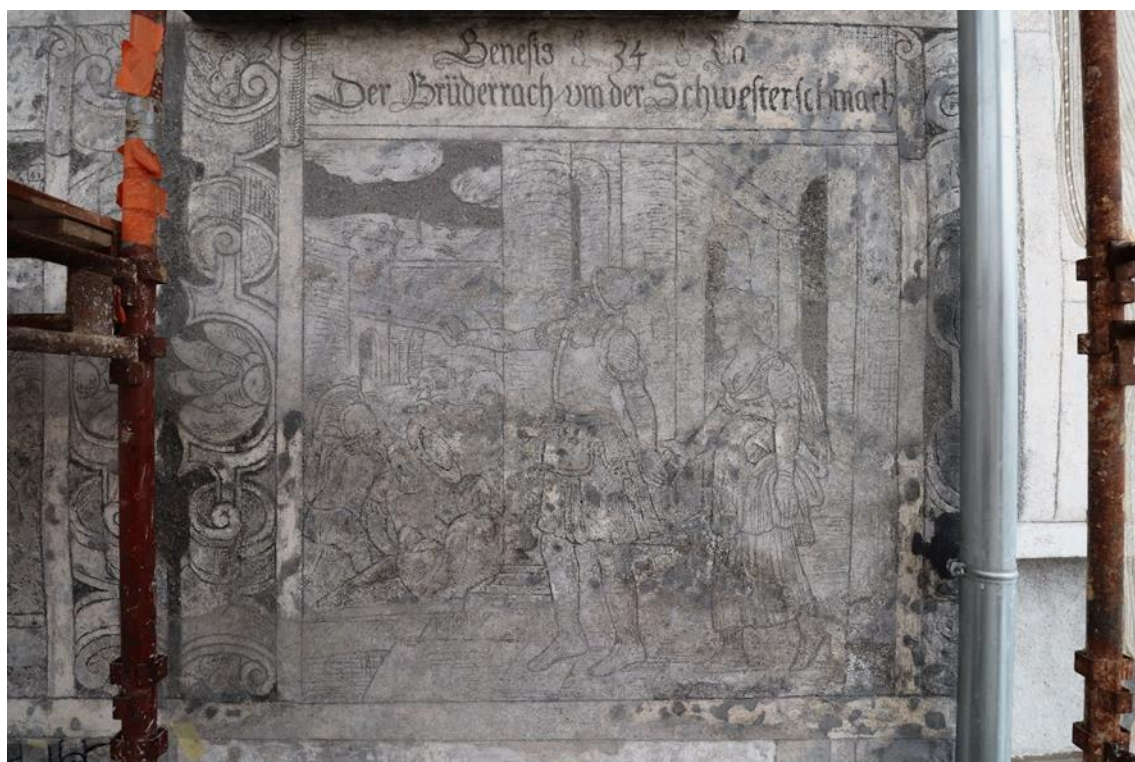 Genesis 34
Der Brüderrach vm der Schwesterschmach